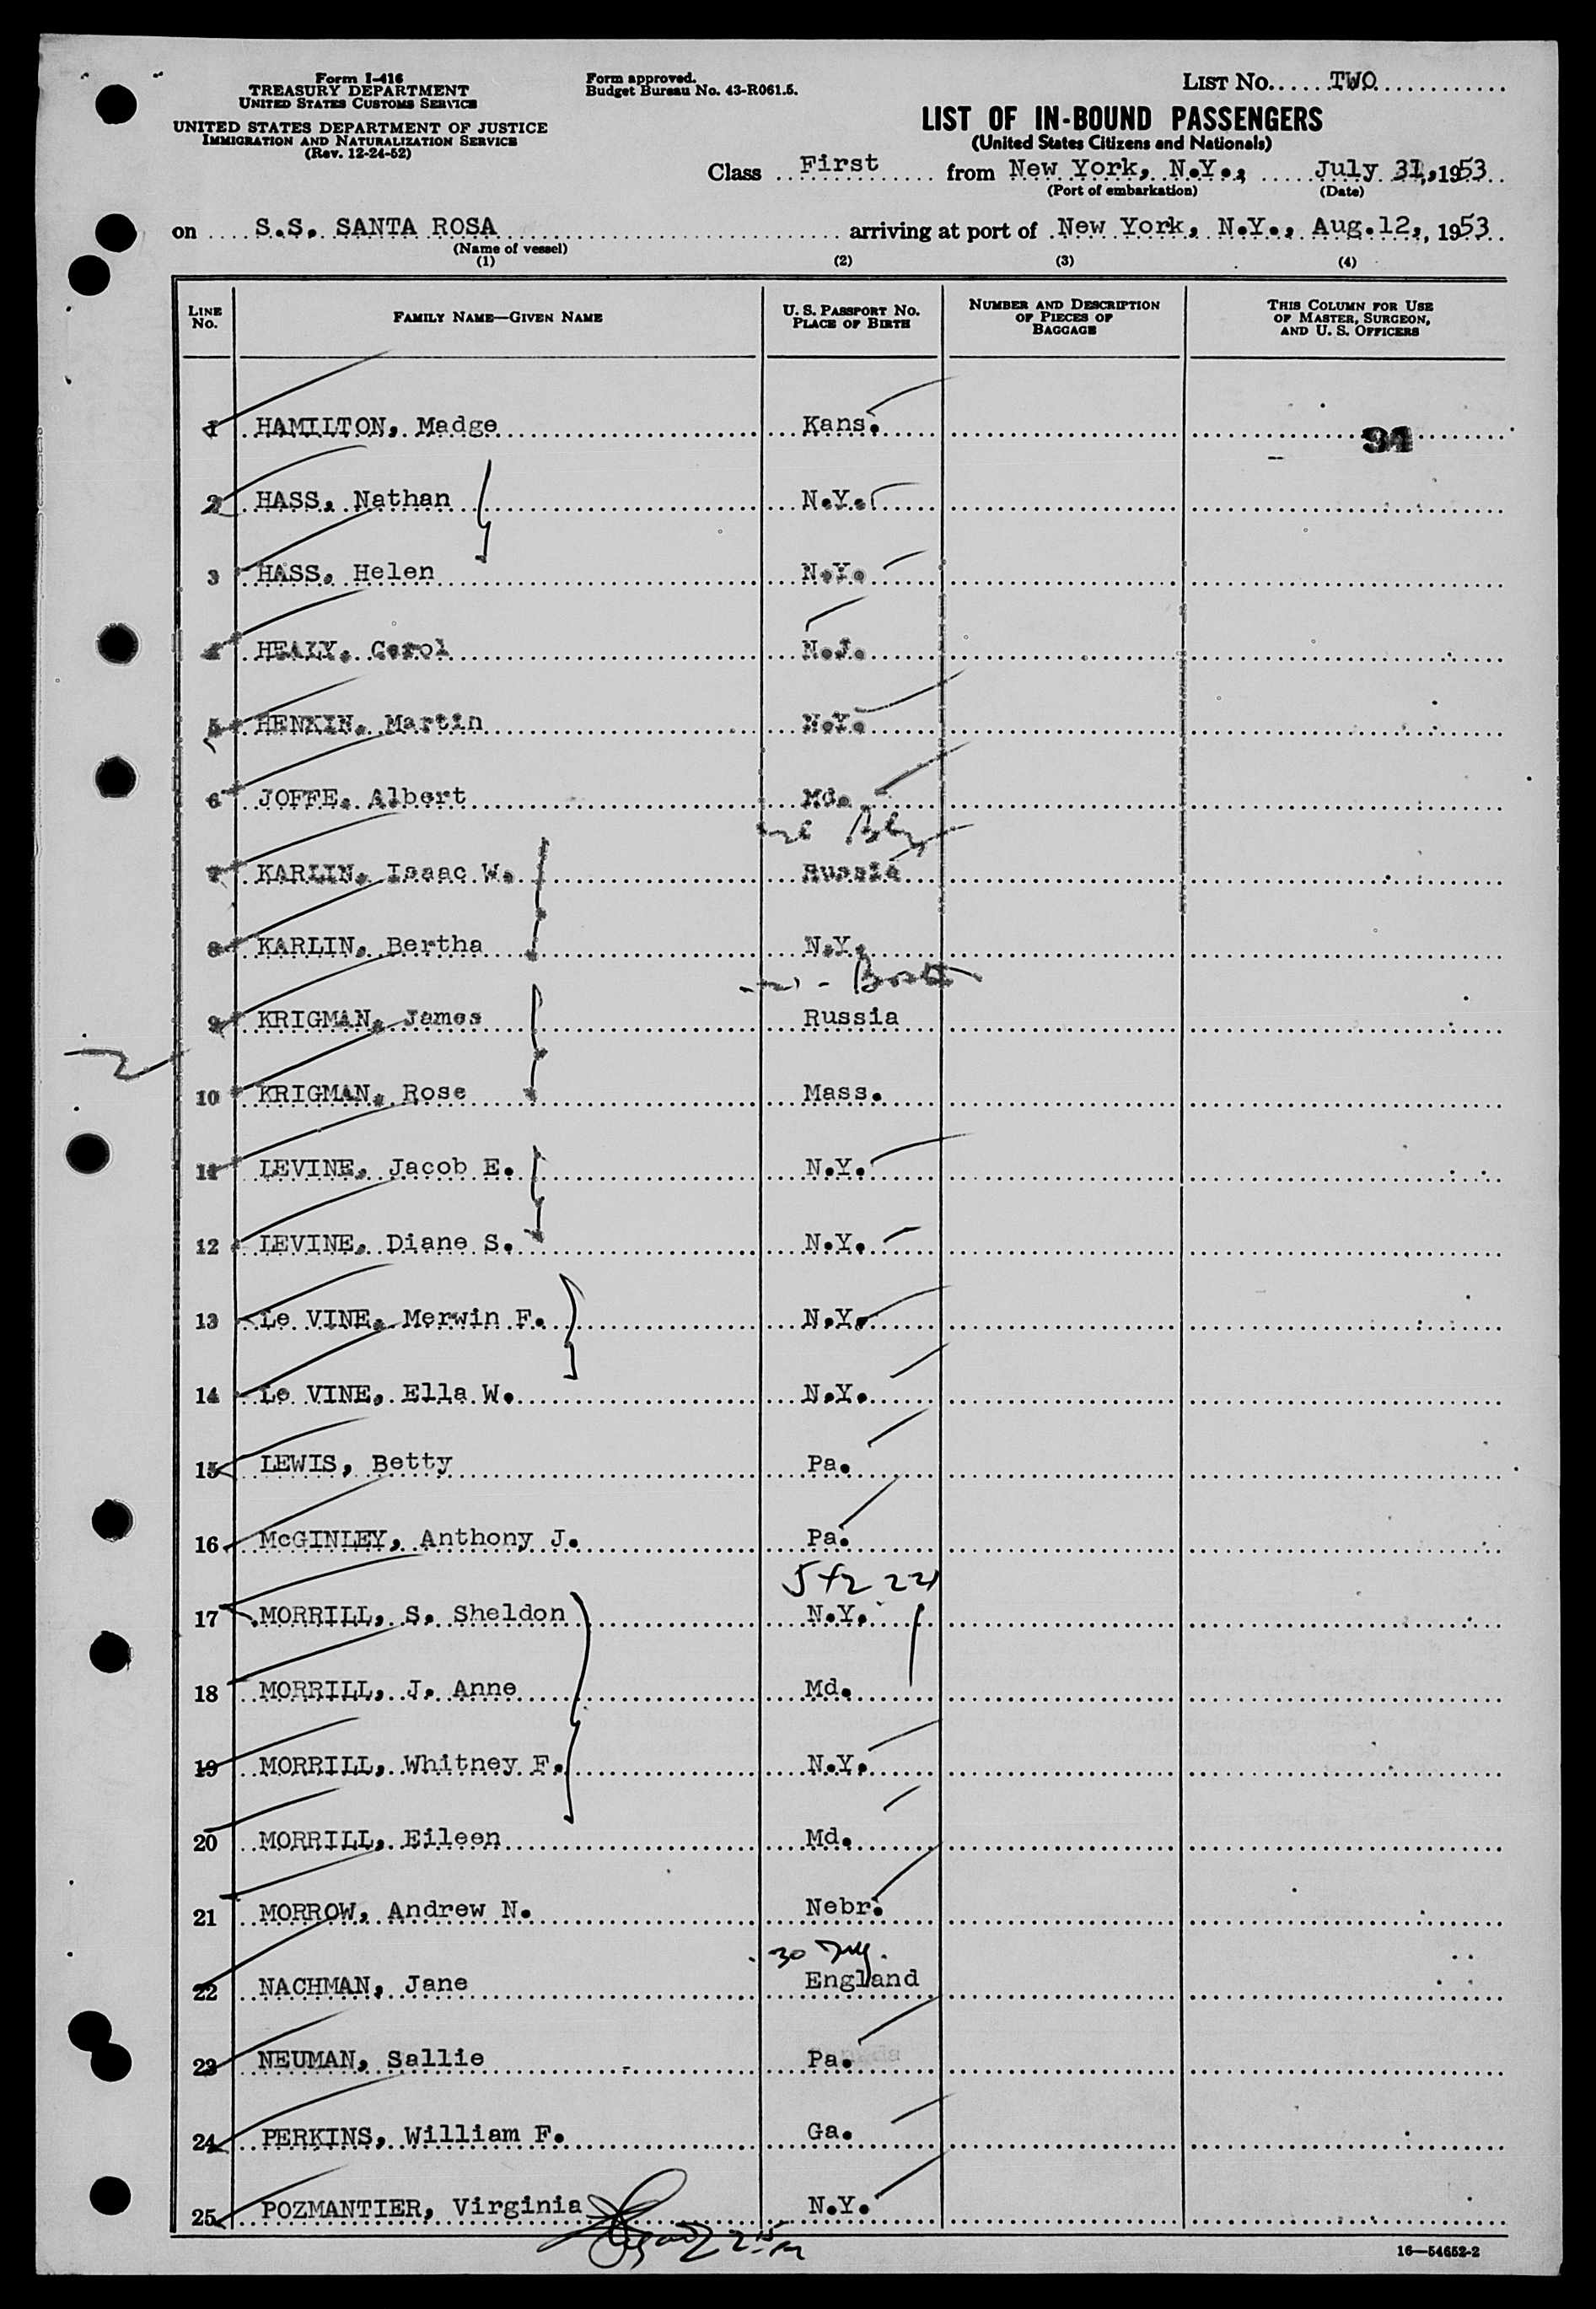 Form I-416
TREASURY DEPARTMENT
UNITED STATES CUSTOMS SERVICE
UNITED STATES DEPARTMENT OF JUSTICE
IMMIGRATION AND NATURALIZATION SERVICE
(Rev. 12-24-52)
Form approved.
Budget Bureau No. 43-R061.5.
LIST No. TWO
LIST OF IN-BOUND PASSENGERS
(United States Citizens and Nationals)
Class First from New York, N.Y., July 31, 1953
(Port of embarkation) (Date)
on S.S. SANTA ROSA arriving at port of New York, N.Y., Aug. 12, 1953
(Name of vessel)
(1) (2) (3) (4)
LINE No. FAMILY NAME—GIVEN NAME U. S. PASSPORT No. PLACE OF BIRTH NUMBER AND DESCRIPTION OF PIECES OF BAGGAGE THIS COLUMN FOR USE OF MASTER, SURGEON, AND U. S. OFFICERS
1 HAMILTON, Madge Kans.
94
2 HASS, Nathan N.Y.
3 HASS, Helen N.Y.
4 HEALY, Carol N.J.
5 HENKIN, Martin N.Y.
6 JOFFE, Albert Md.
7 KARLIN, Isaac W. Russia
8 KARLIN, Bertha N.Y.
9 KRIGMAN, James Russia
10 KRIGMAN, Rose Mass.
11 LEVINE, Jacob E. N.Y.
12 LEVINE, Diane S. N.Y.
13 Le VINE, Merwin F. N.Y.
14 Le VINE, Ella W. N.Y.
15 LEWIS, Betty Pa.
16 McGINLEY, Anthony J. Pa.
17 MORRILL, S. Sheldon N.Y.
18 MORRILL, J. Anne Md.
19 MORRILL, Whitney F. N.Y.
20 MORRILL, Eileen Md.
21 MORROW, Andrew N. Nebr.
30
22 NACHMAN, Jane England
23 NEUMAN, Sallie Pa.
24 PERKINS, William F. Ga.
25 POZMANTIER, Virginia N.Y.
16—54652-2